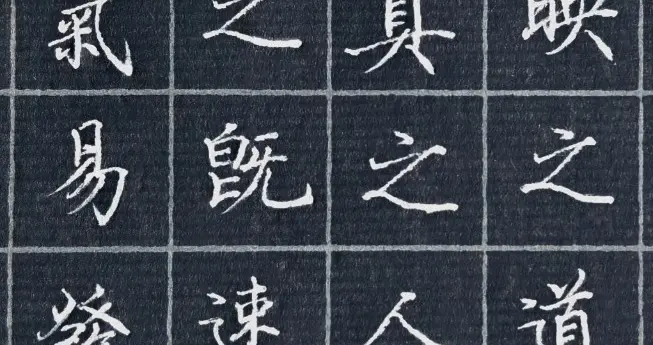 映之道
真之人
之既速
氣易發